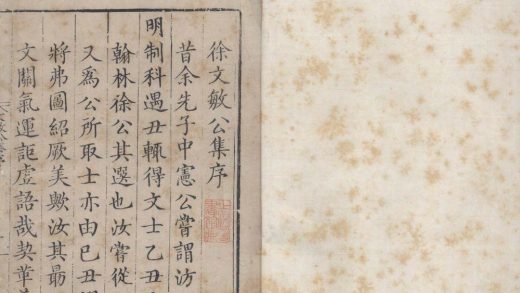 徐文敏公集序
昔余先子中憲公嘗謂汸
明制科遇丑輒得文士乙丑
翰林徐公其選也汝嘗從
又為公所取士亦由己丑
將弗圖紹厥美歟汝其最
文關氣運詎虛語哉契草